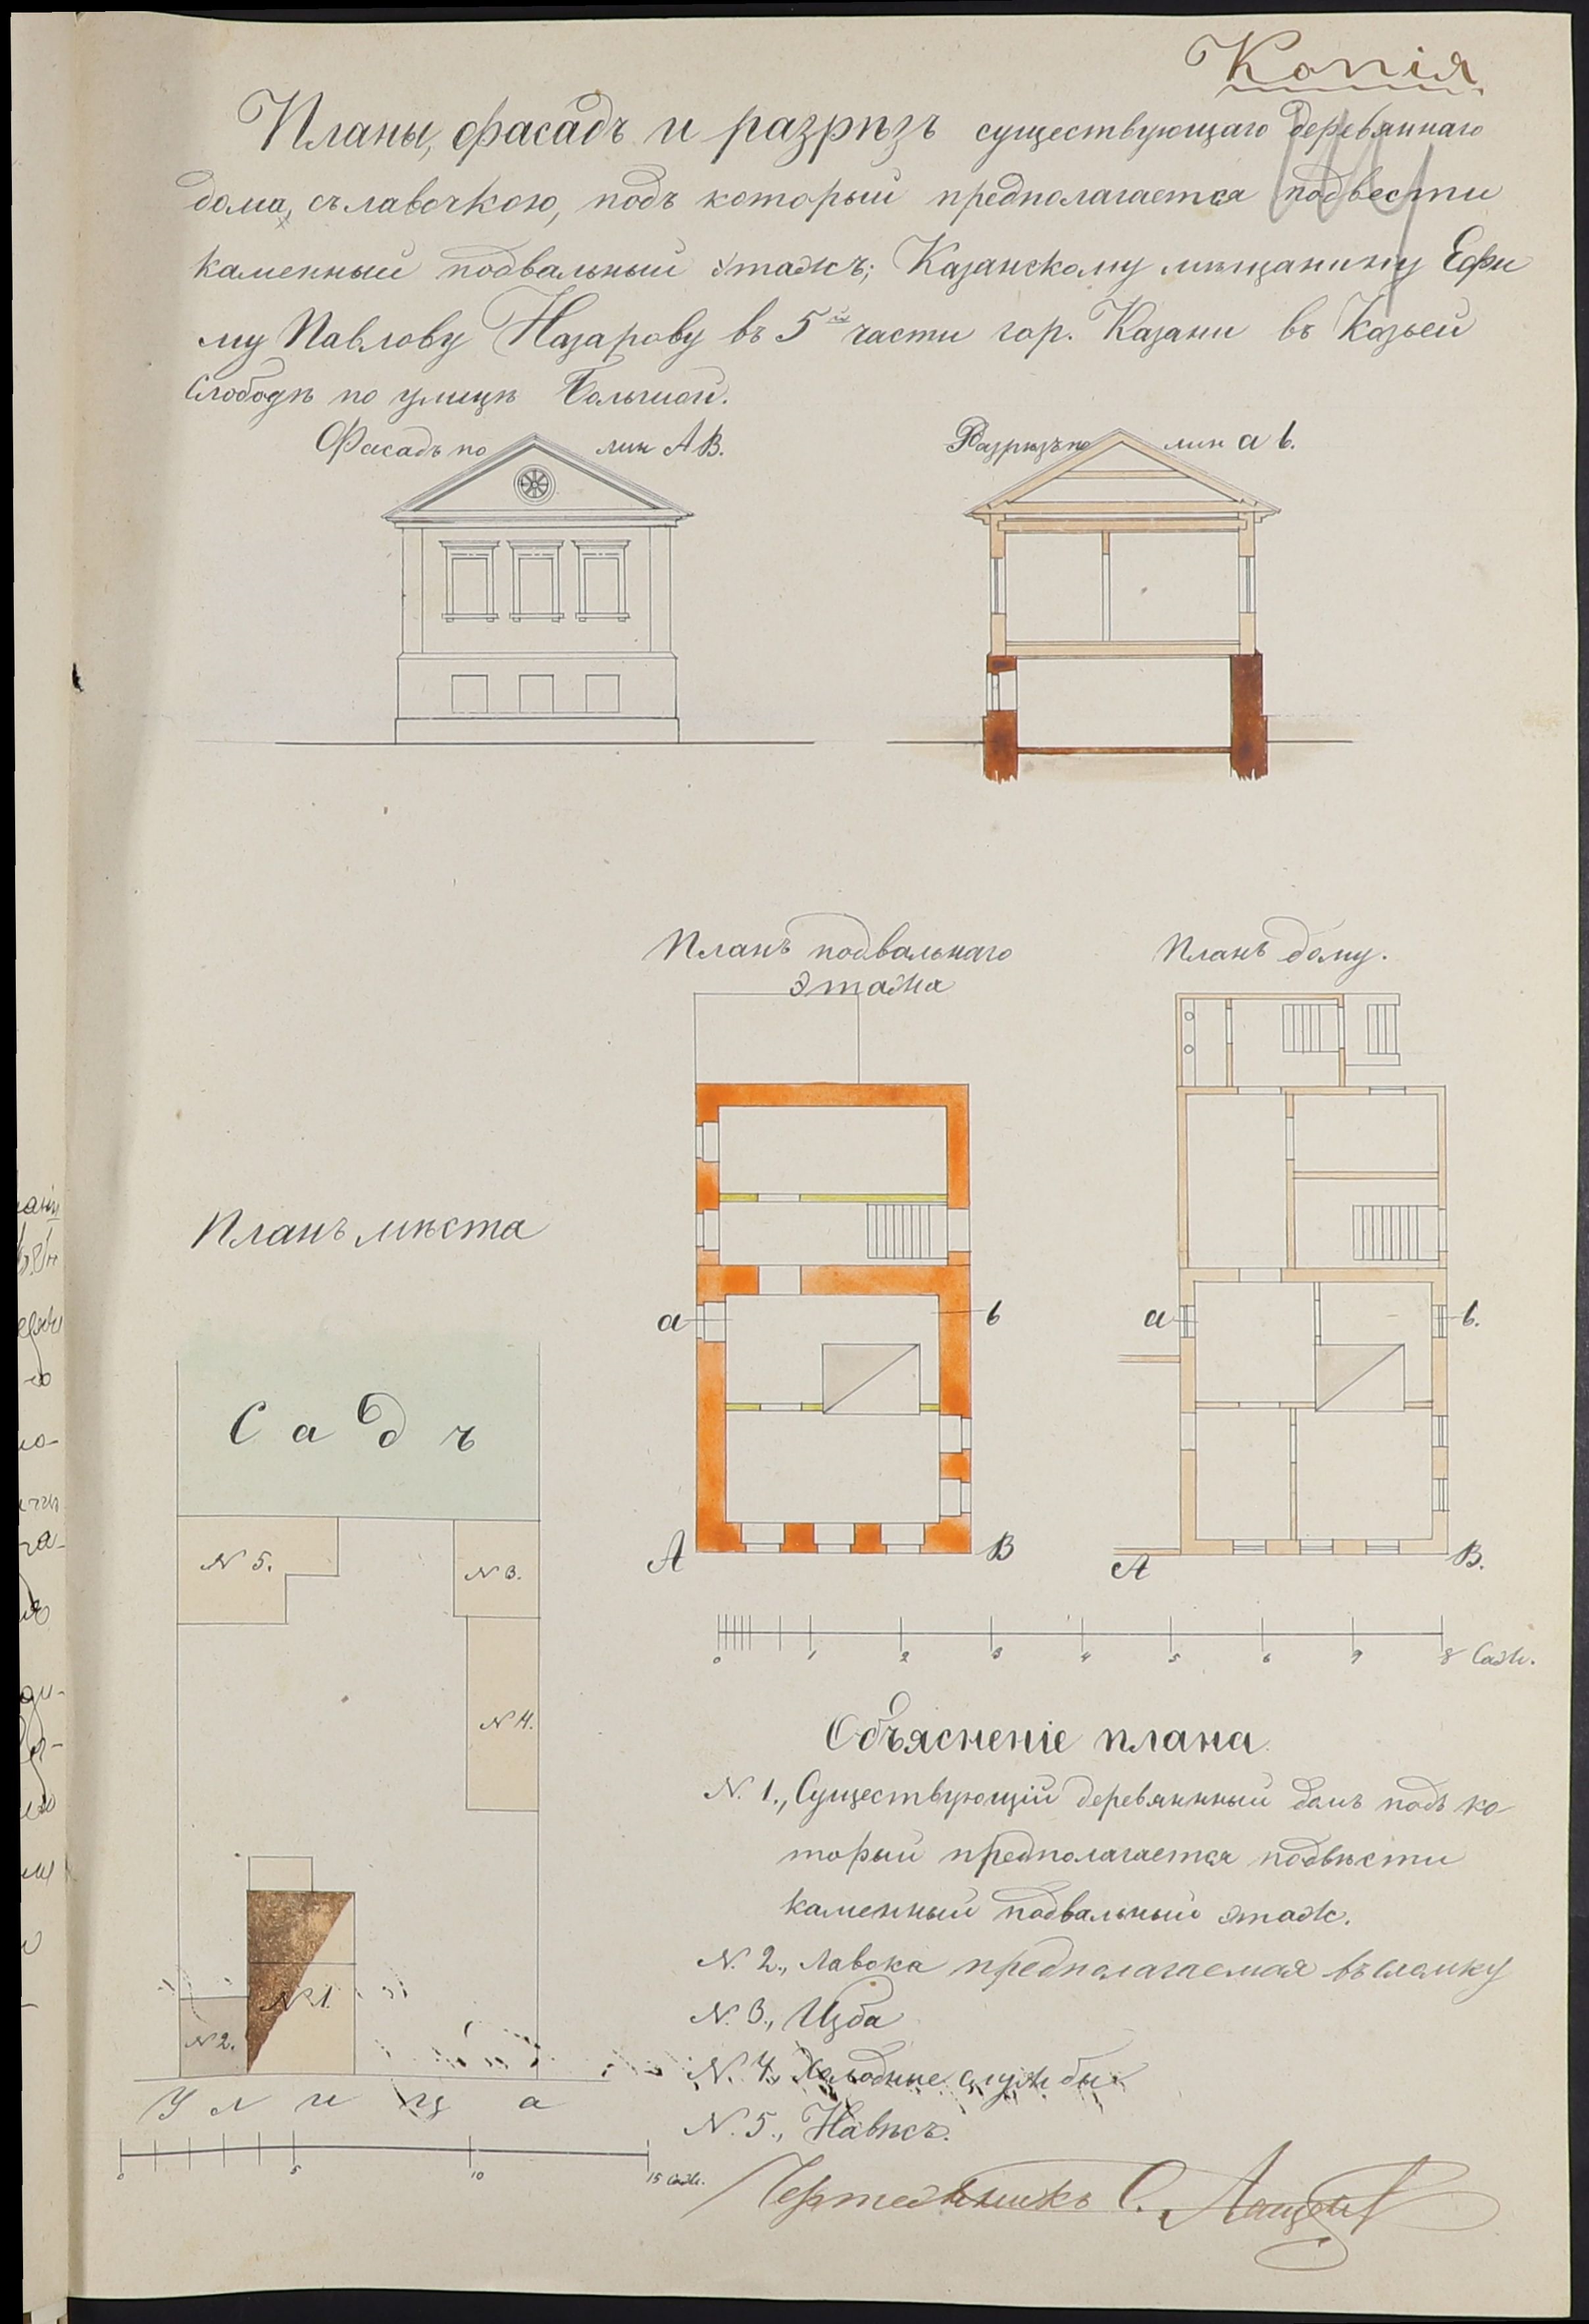 Копія
Планы, фасадъ и разрѣзъ существующаго деревяннаго
дома, съ лавочкою, подъ который предполагается подвести
каменный подвальный этажъ; Казанскому мѣщанину Ефи
му Павлову Назарову въ 5й части гор. Казани въ Козьей
Слободѣ по улицѣ Большой.
Фасадъ по лин АВ.
Разрѣзъ по лин а b.
Планъ подвальнаго
этажа
Планъ дому.
a b
a b.
А В
А В.
0 1 2 3 4 5 6 7 8 Саж.
Планъ мѣста
Садъ
N 5.
N 3.
N 4.
N 1.
N 2.
Улица
0 5 10 15 саж.
Объясненіе плана
N. 1., Существующій деревянный домъ подъ ко-
торый предполагается подвѣсти
каменный подвальный этаж.
N. 2., Лавока предполагаемая въ сломку
N. 3., Изба
N. 4., Холодные службы
N. 5., Навѣсъ.
Чертежникъ С.